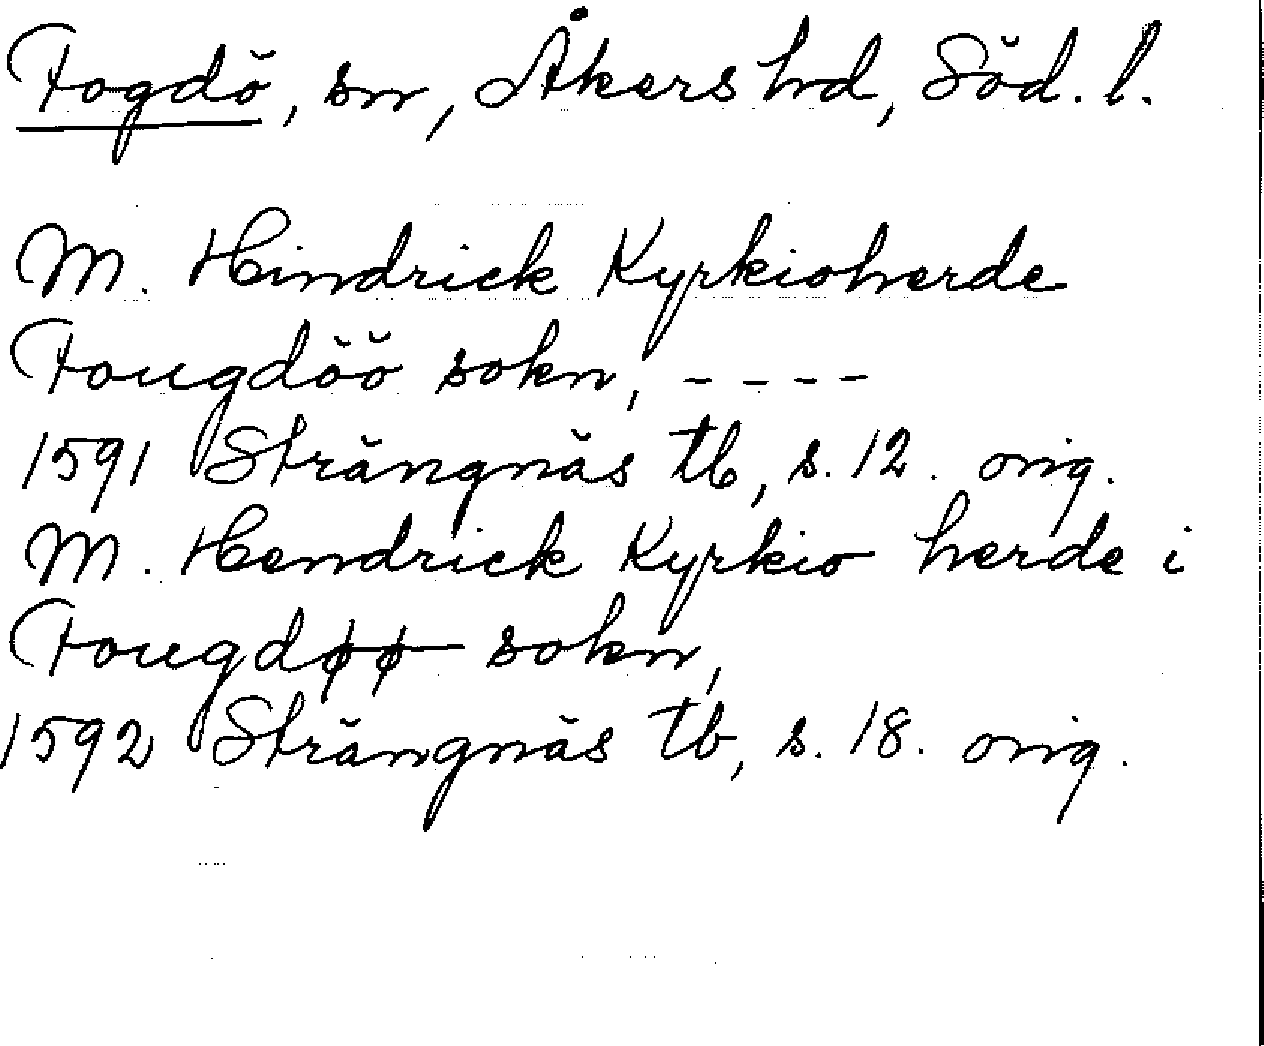 Fogdö, sn, Åkers hd, Söd. l.
M. Hindrick Kyrkioherde
Fougdöö sokn, - - - -
1591 Strängnäs tb, s. 12. orig.
M. Hendrick Kyrkio herde i
Fougdøø sokn,
1592 Strängnäs tb, s. 18. orig.